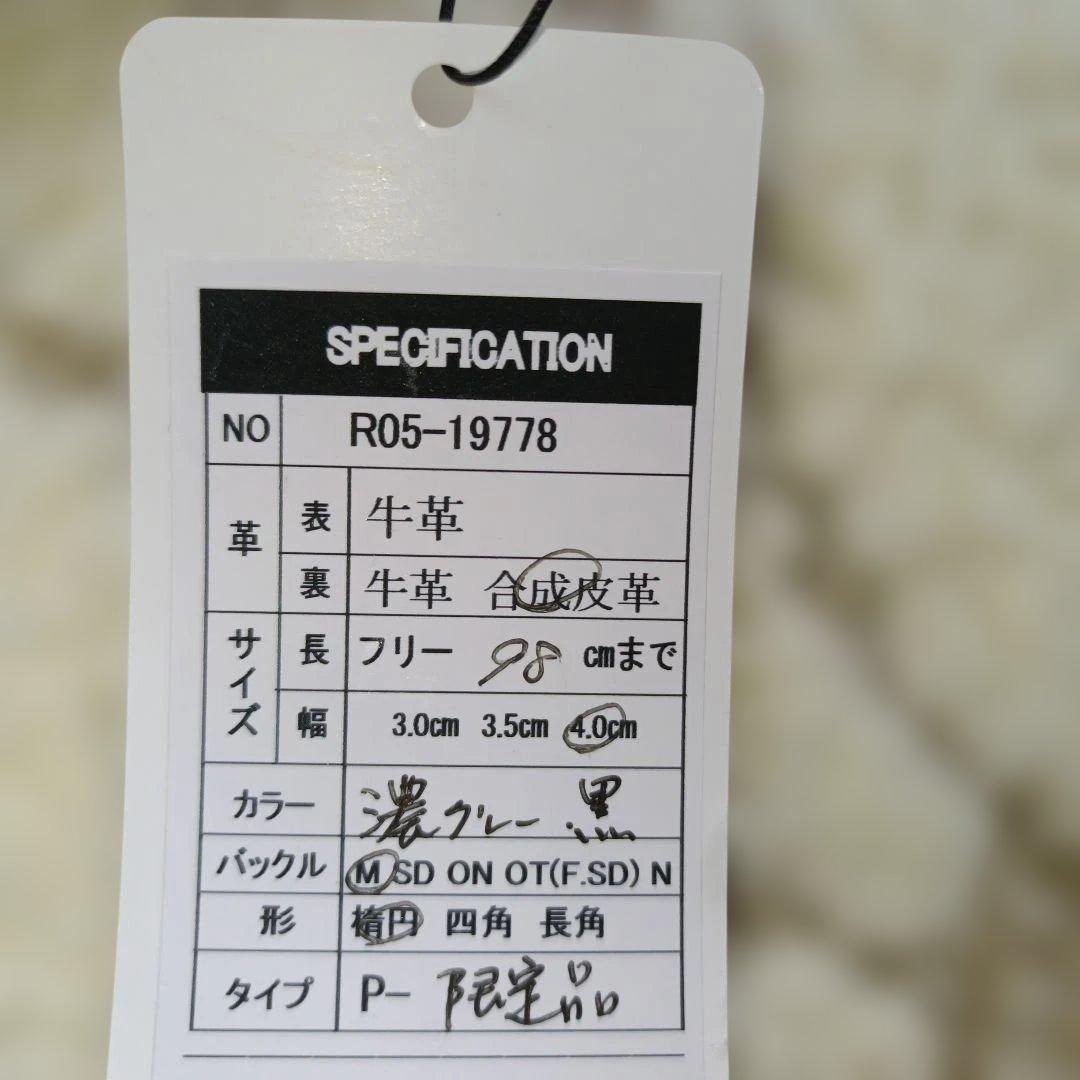 SPECIFICATION
NO R05-19778
革 表 牛革
裏 牛革 合成皮革
サイズ 長 フリー 98 ㎝まで
幅 3.0㎝ 3.5㎝ 4.0㎝
カラー 濃グレー 黒
バックル M SD ON OT(F.SD) N
形 楕円 四角 長角
タイプ P- 限定品